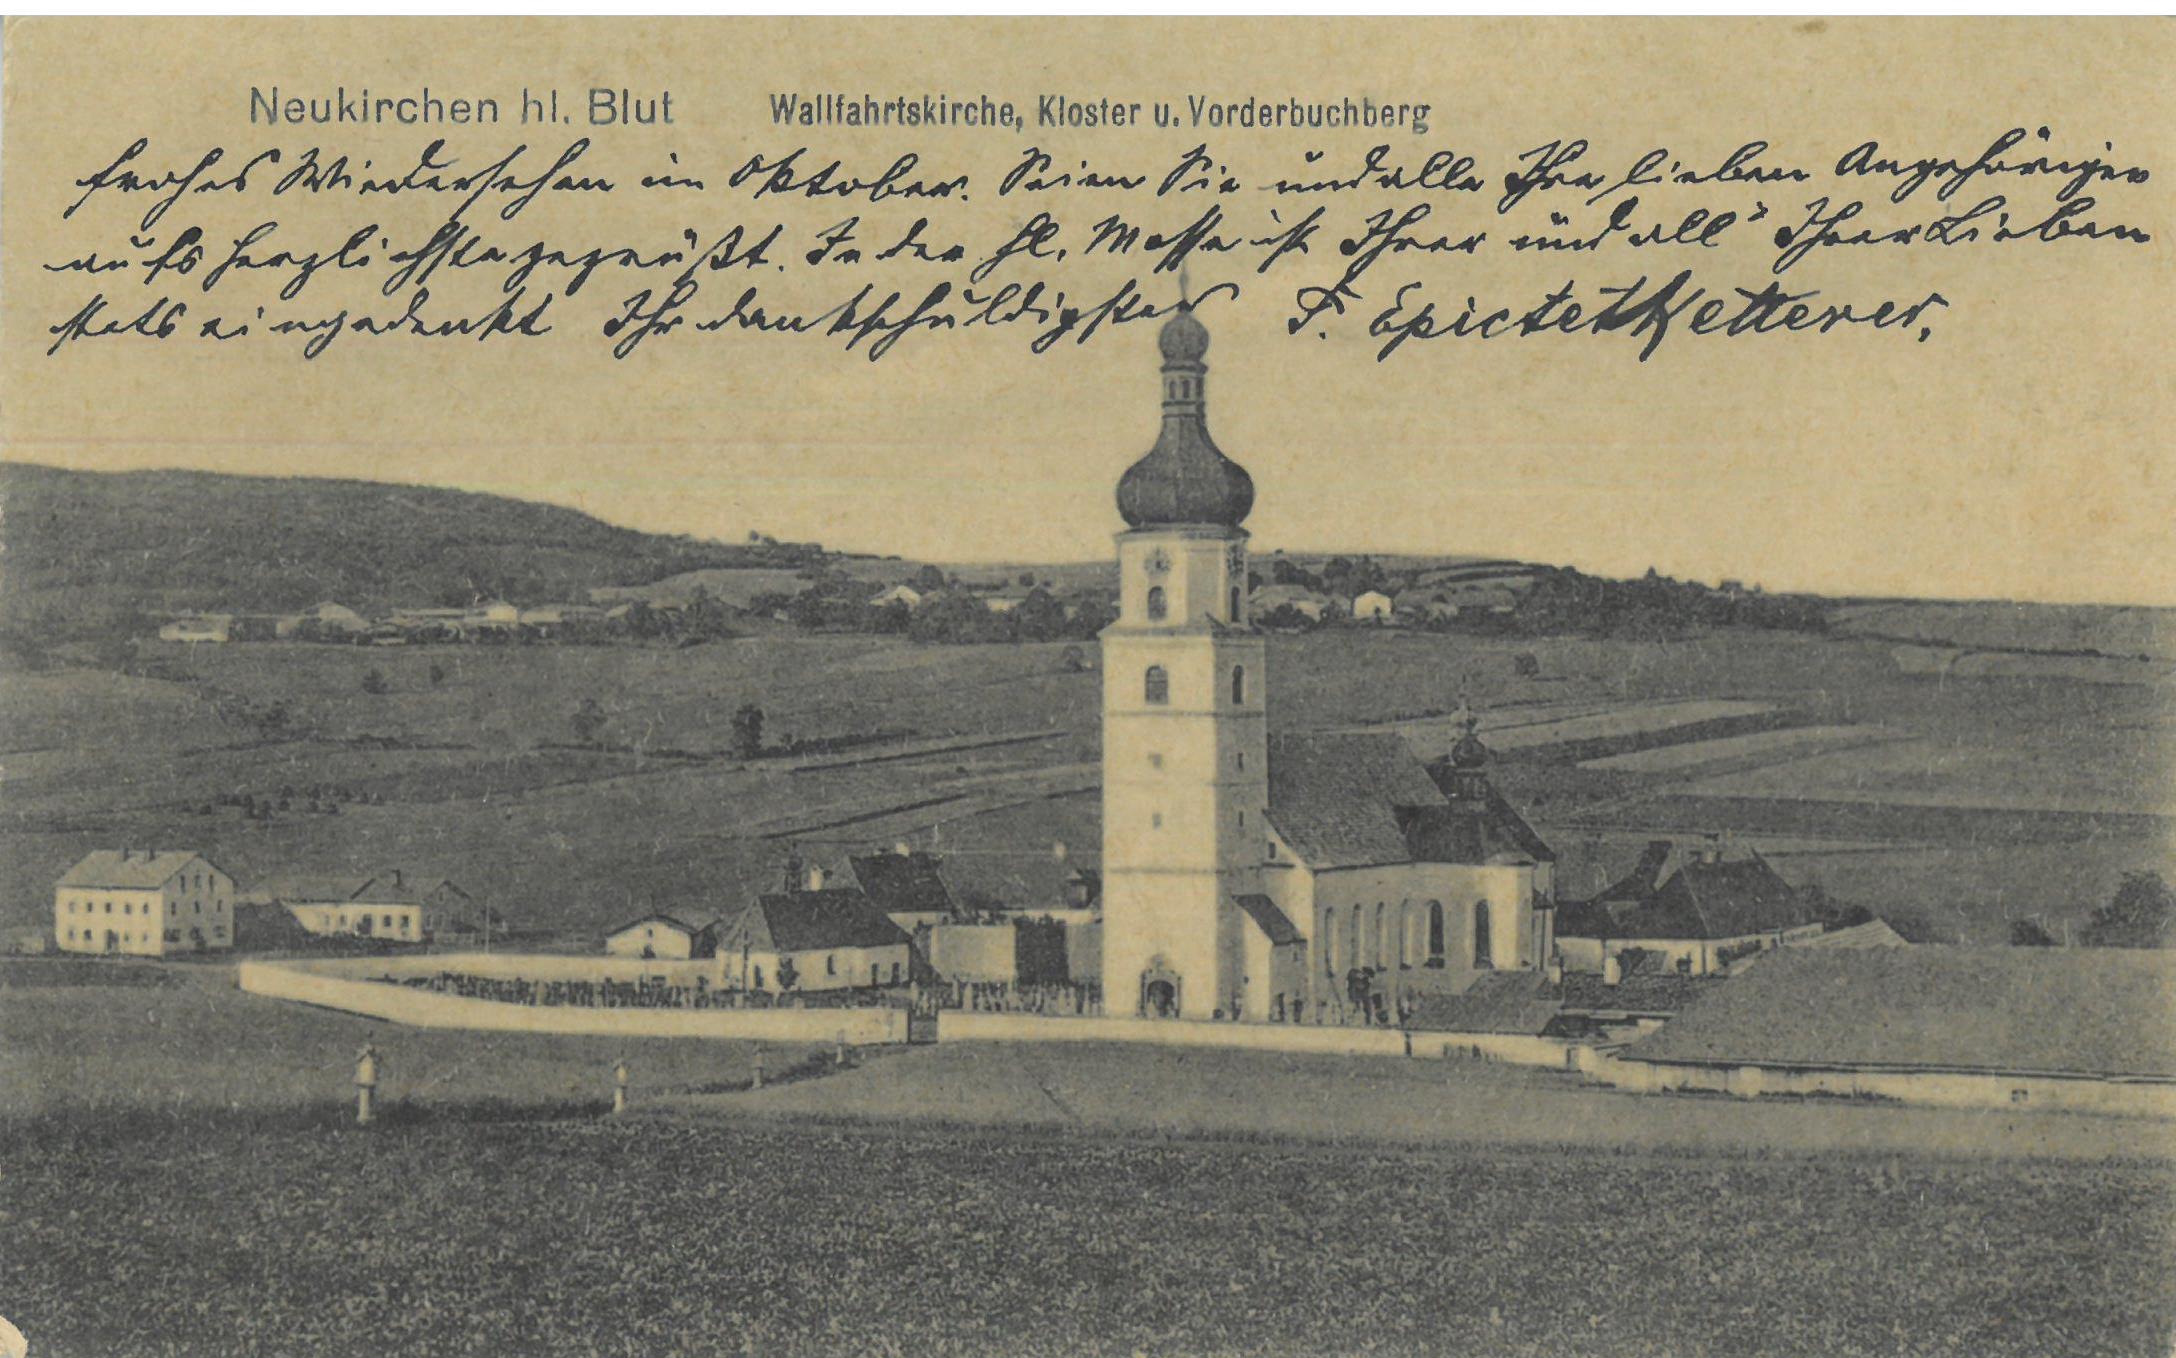 Neukirchen hl. Blut Wallfahrtskirche, Kloster u. Vorderbuchberg
frohes Wiedersehen im Oktober. Seien Sie und alle Ihre lieben Angehörigen
aufs herzlichste gegrüßt. In der hl. Messe ist Ihrer und all' Ihrer Lieben
stets eingedenkt Ihr dankschuldigster F. Epictet Ketterer.